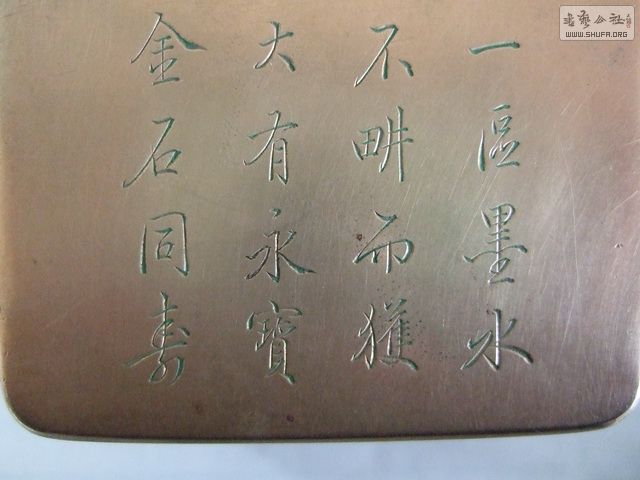 一區墨水
不畊而獲
大有永寶
金石同壽
書藝公社
WWW.SHUFA.ORG